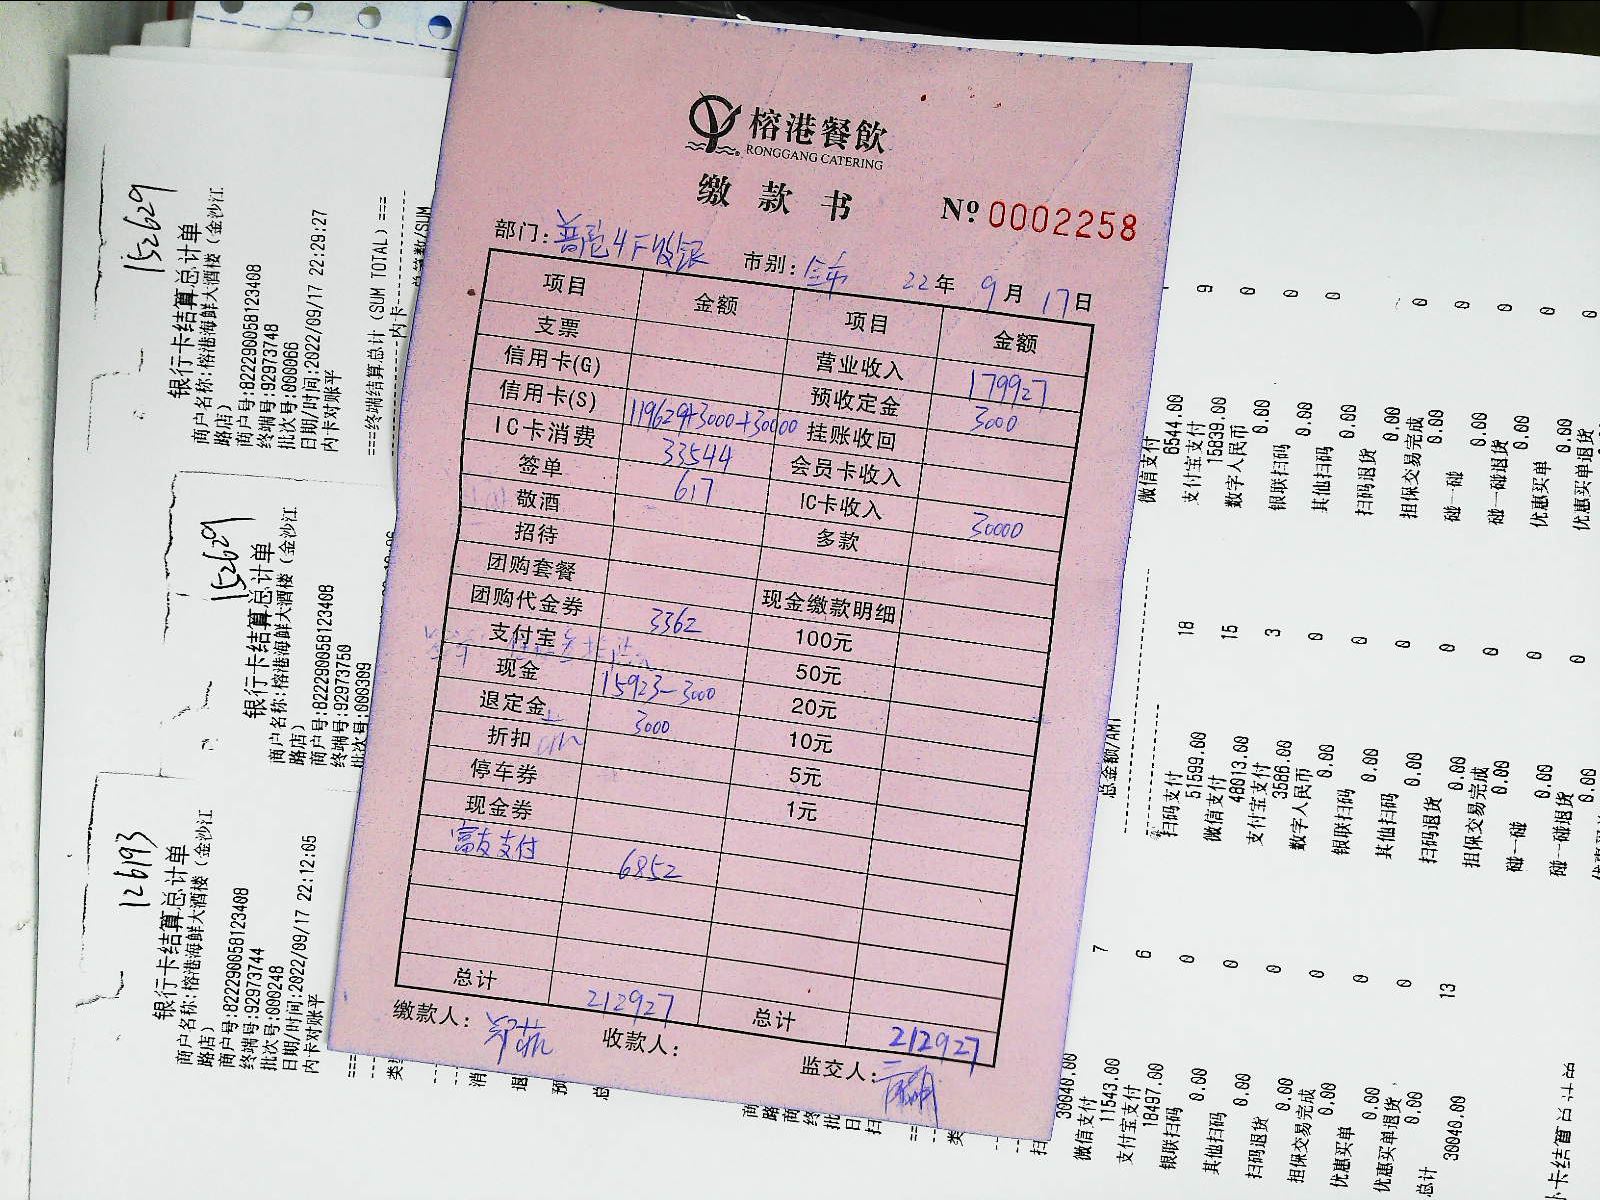 榕港餐飲
RONGGANG CATERING
缴款书
№ 0002258
部门: 普陀4F收银 市别: 全市 22年 9月 17日
项目 金额 项目 金额
支票 营业收入 179927
信用卡(G) 预收定金 3000
信用卡(S) 119629+3000+30000 挂账收回
IC卡消费 33544 会员卡收入
签单 617 IC卡收入 30000
敬酒 多款
招待
团购套餐 现金缴款明细
团购代金券 3362 100元
支付宝 50元
现金 15923-3000 20元
退定金 3000 10元
折扣 5元
停车券 1元
现金券
富友支付 6852
总计 212927 总计 212927
缴款人:
收款人:
监交人:
152629
银行卡结算总计单
商户名称:榕港海鲜大酒楼(金沙江
路店)
商户号:82229005812340​8
终端号:92973748
批次号:000066
日期/时间:2022/09/17 22:29:27
内卡对账平
===终端结算总计(SUM TOTAL)===
内卡
总笔数/SUM
152629
银行卡结算总计单
商户名称:榕港海鲜大酒楼(金沙江
路店)
商户号:822290058123408
终端号:92973750
批次号:000309
126193
银行卡结算总计单
商户名称:榕港海鲜大酒楼(金沙江
路店)
商户号:822290058123408
终端号:92973744
批次号:000248
日期/时间:2022/09/17 22:12:05
内卡对账平
微信支付 9
6544.00
支付宝支付 0
15839.00
数字人民币 0
0.00
银联扫码 0
0.00
其他扫码
0.00
扫码退货 0
0.00
担保交易完成 0
0.00
碰一碰 0
0.00
碰一碰退货 0
0.00
优惠买单 0
0.00
优惠买单退货
总金额/AMT
扫码支付 18
51599.00
微信支付 15
48013.00
支付宝支付 3
3586.00
数字人民币 0
0.00
银联扫码 0
0.00
其他扫码 0
0.00
扫码退货 0
0.00
担保交易完成 0
0.00
碰一碰 0
0.00
碰一碰退货 0
0.00
30040.00
微信支付 7
11543.00
支付宝支付 6
18497.00
银联扫码 0
0.00
其他扫码 0
0.00
扫码退货 0
0.00
担保交易完成 0
0.00
优惠买单 0
0.00
优惠买单退货 0
0.00
总计 13
30040.00